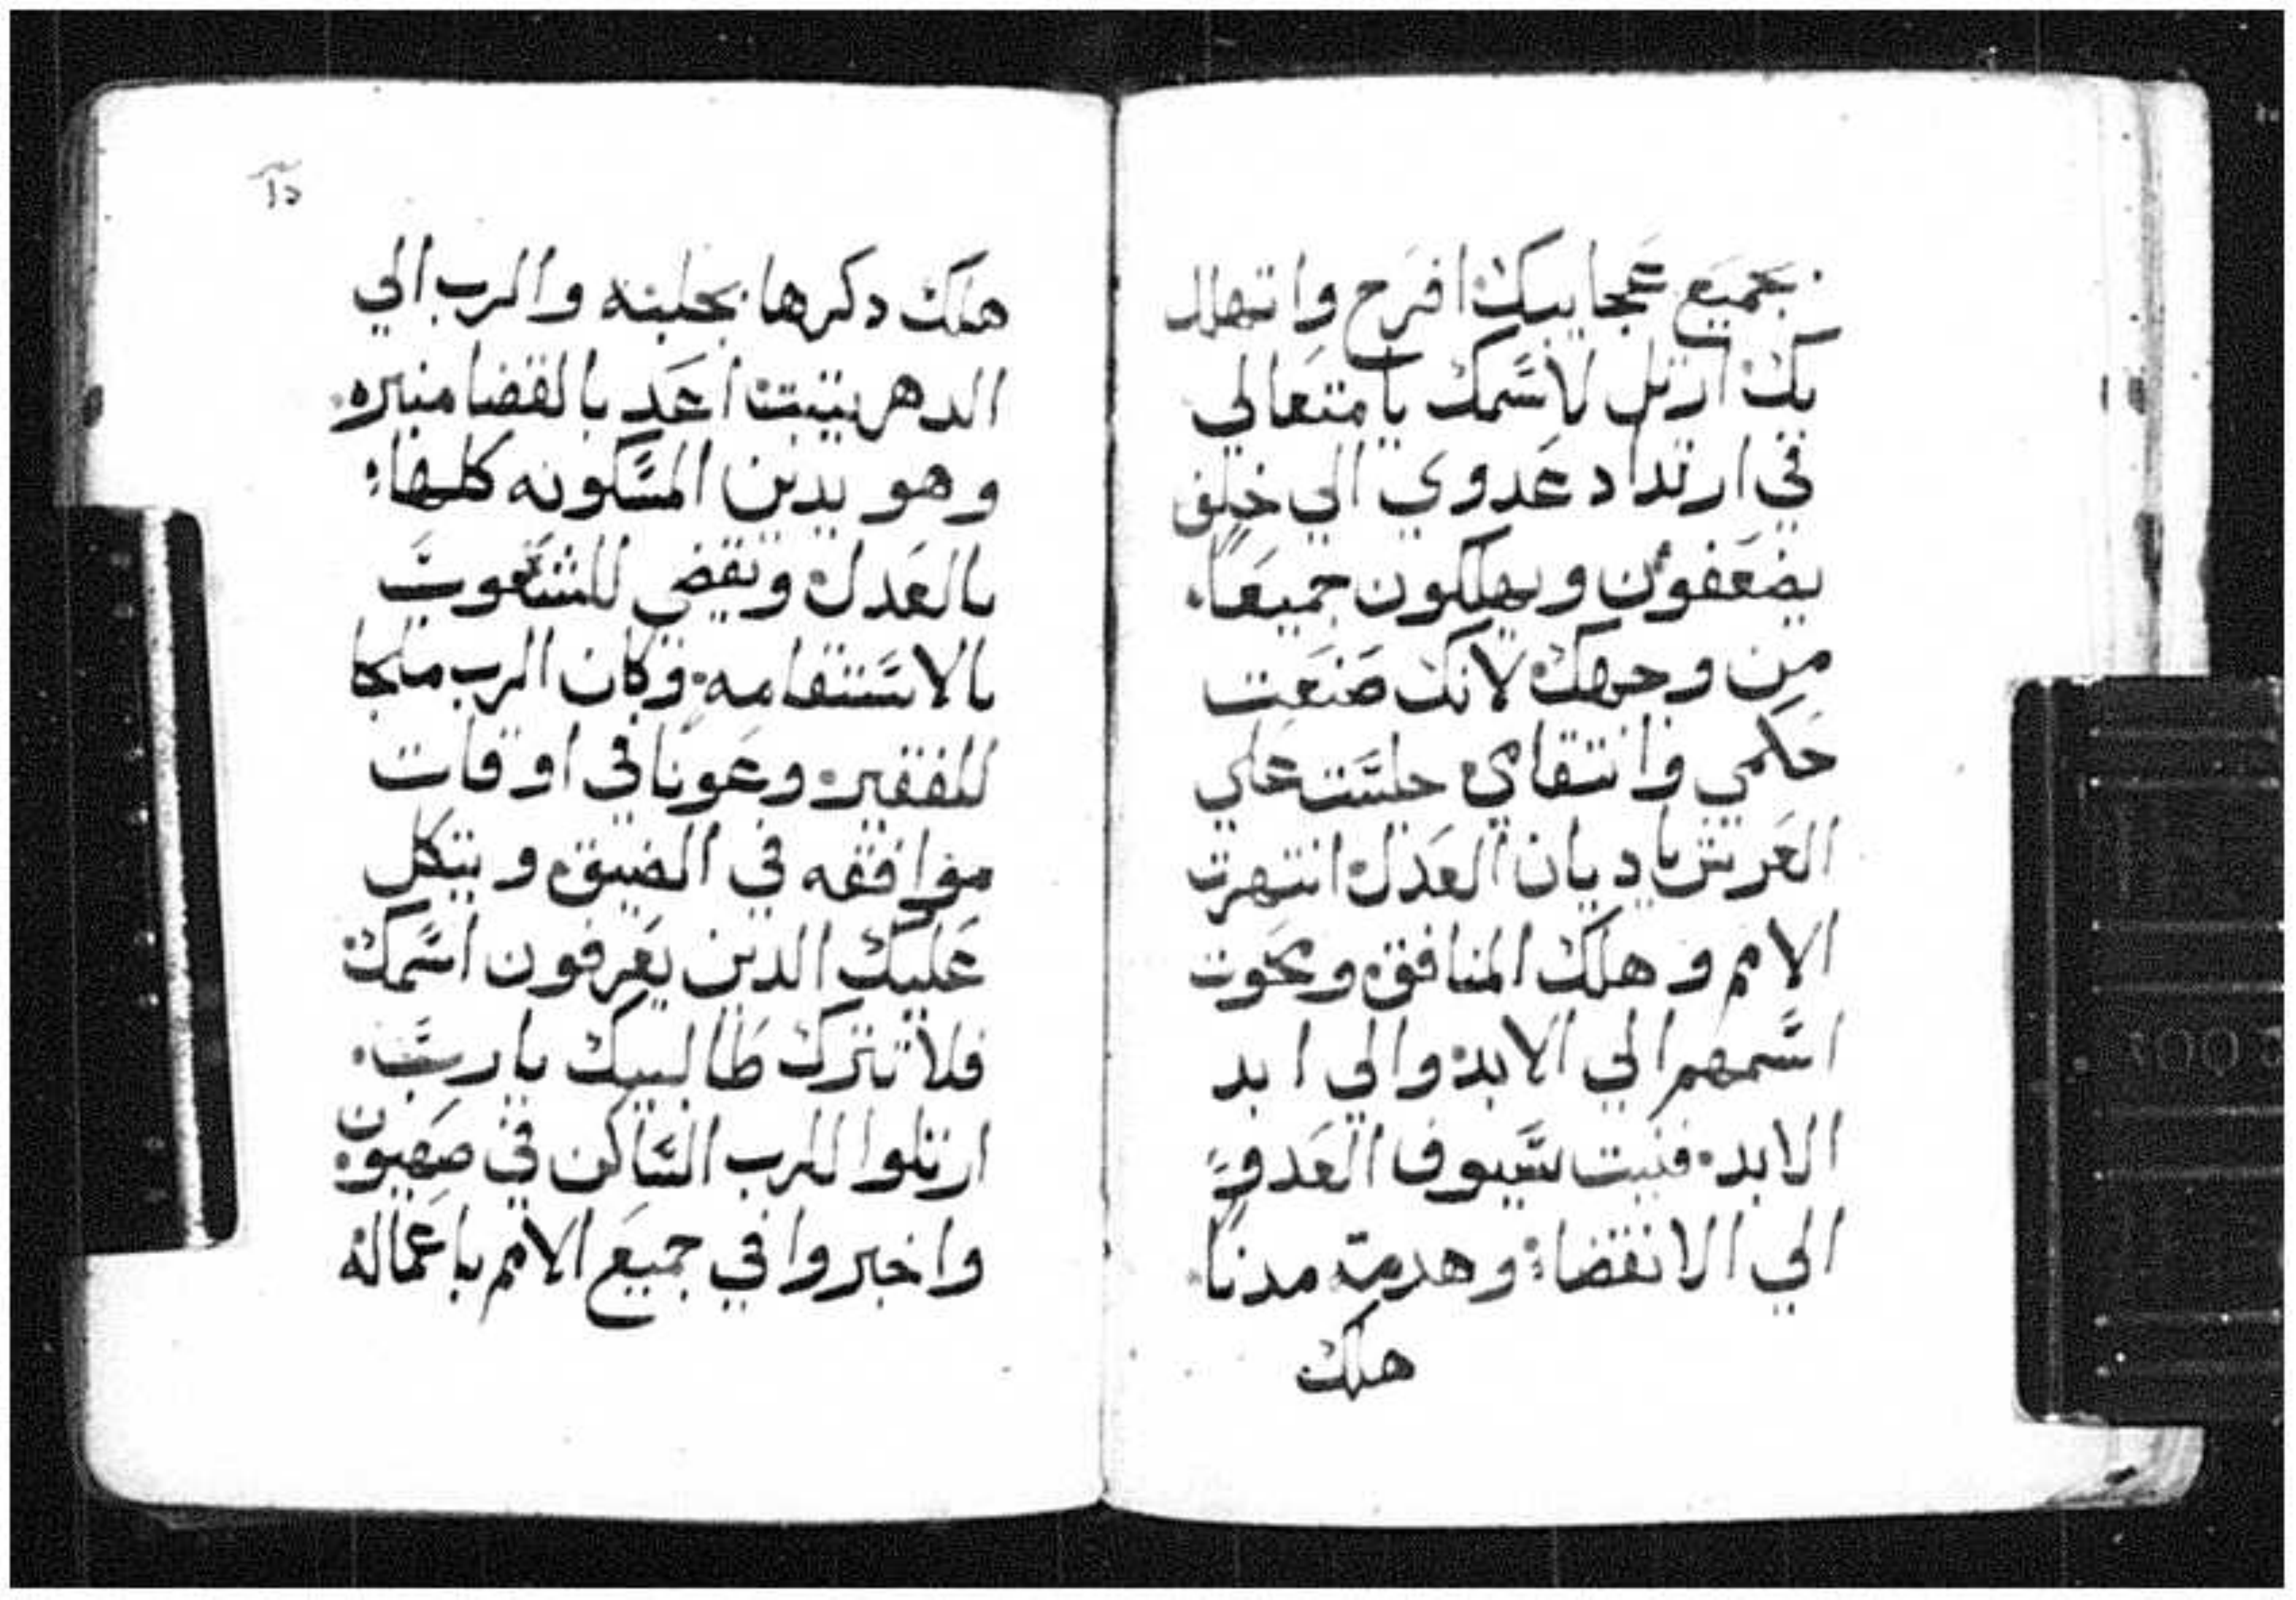 بجميع عجايبك افرح واتهلل
بك ارتل لاسمك يا متعالي
في ارتداد عدوي الي خلف
يضعفون ويهلكون جميعا
من وجهك لانك صنعت
حكمي وانتقامي جلست علي
العرش يا ديان العدل انتهرت
الامم وهلك المنافق ومحوت
اسمهم الي الابد والي ابد
الابد فنيت سيوف العدو
الي الانقضا وهدمت مدنا
هلك
هلك دكرها بجلبته والرب الي
الدهر يتبت اعد بالقضا منبره
وهو يدين المسكونه كلها
بالعدل ويقضي للشعوب
بالاستقامه وكان الرب ملجا
للفقير وعونا في اوقات
موافقه في الضيق ويتكل
عليك الدين يعرفون اسمك
فلا تترك طالبيك يا رب
ارتلوا للرب الساكن في صهيون
واخبروا في جميع الامم باعماله